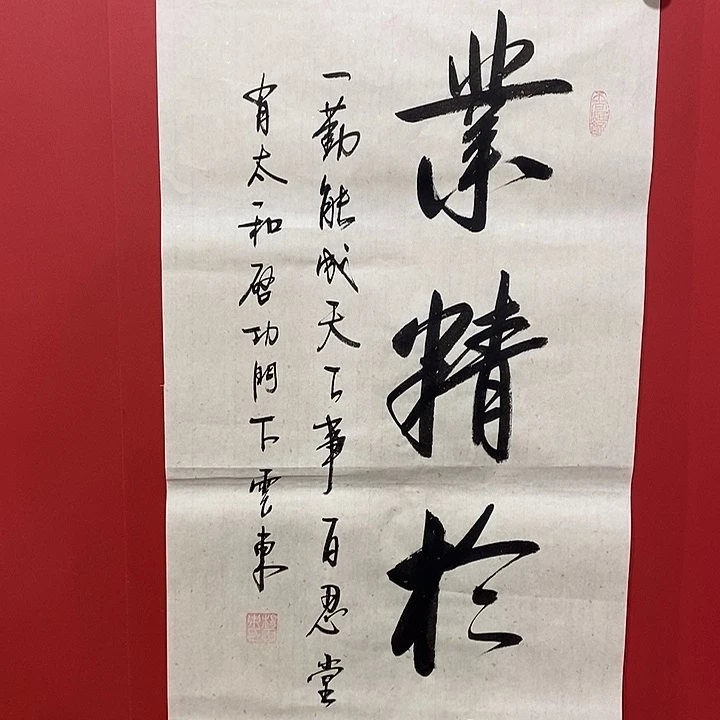 業精於
一勤能成天下事百忍堂
有太和啓功門下雲東